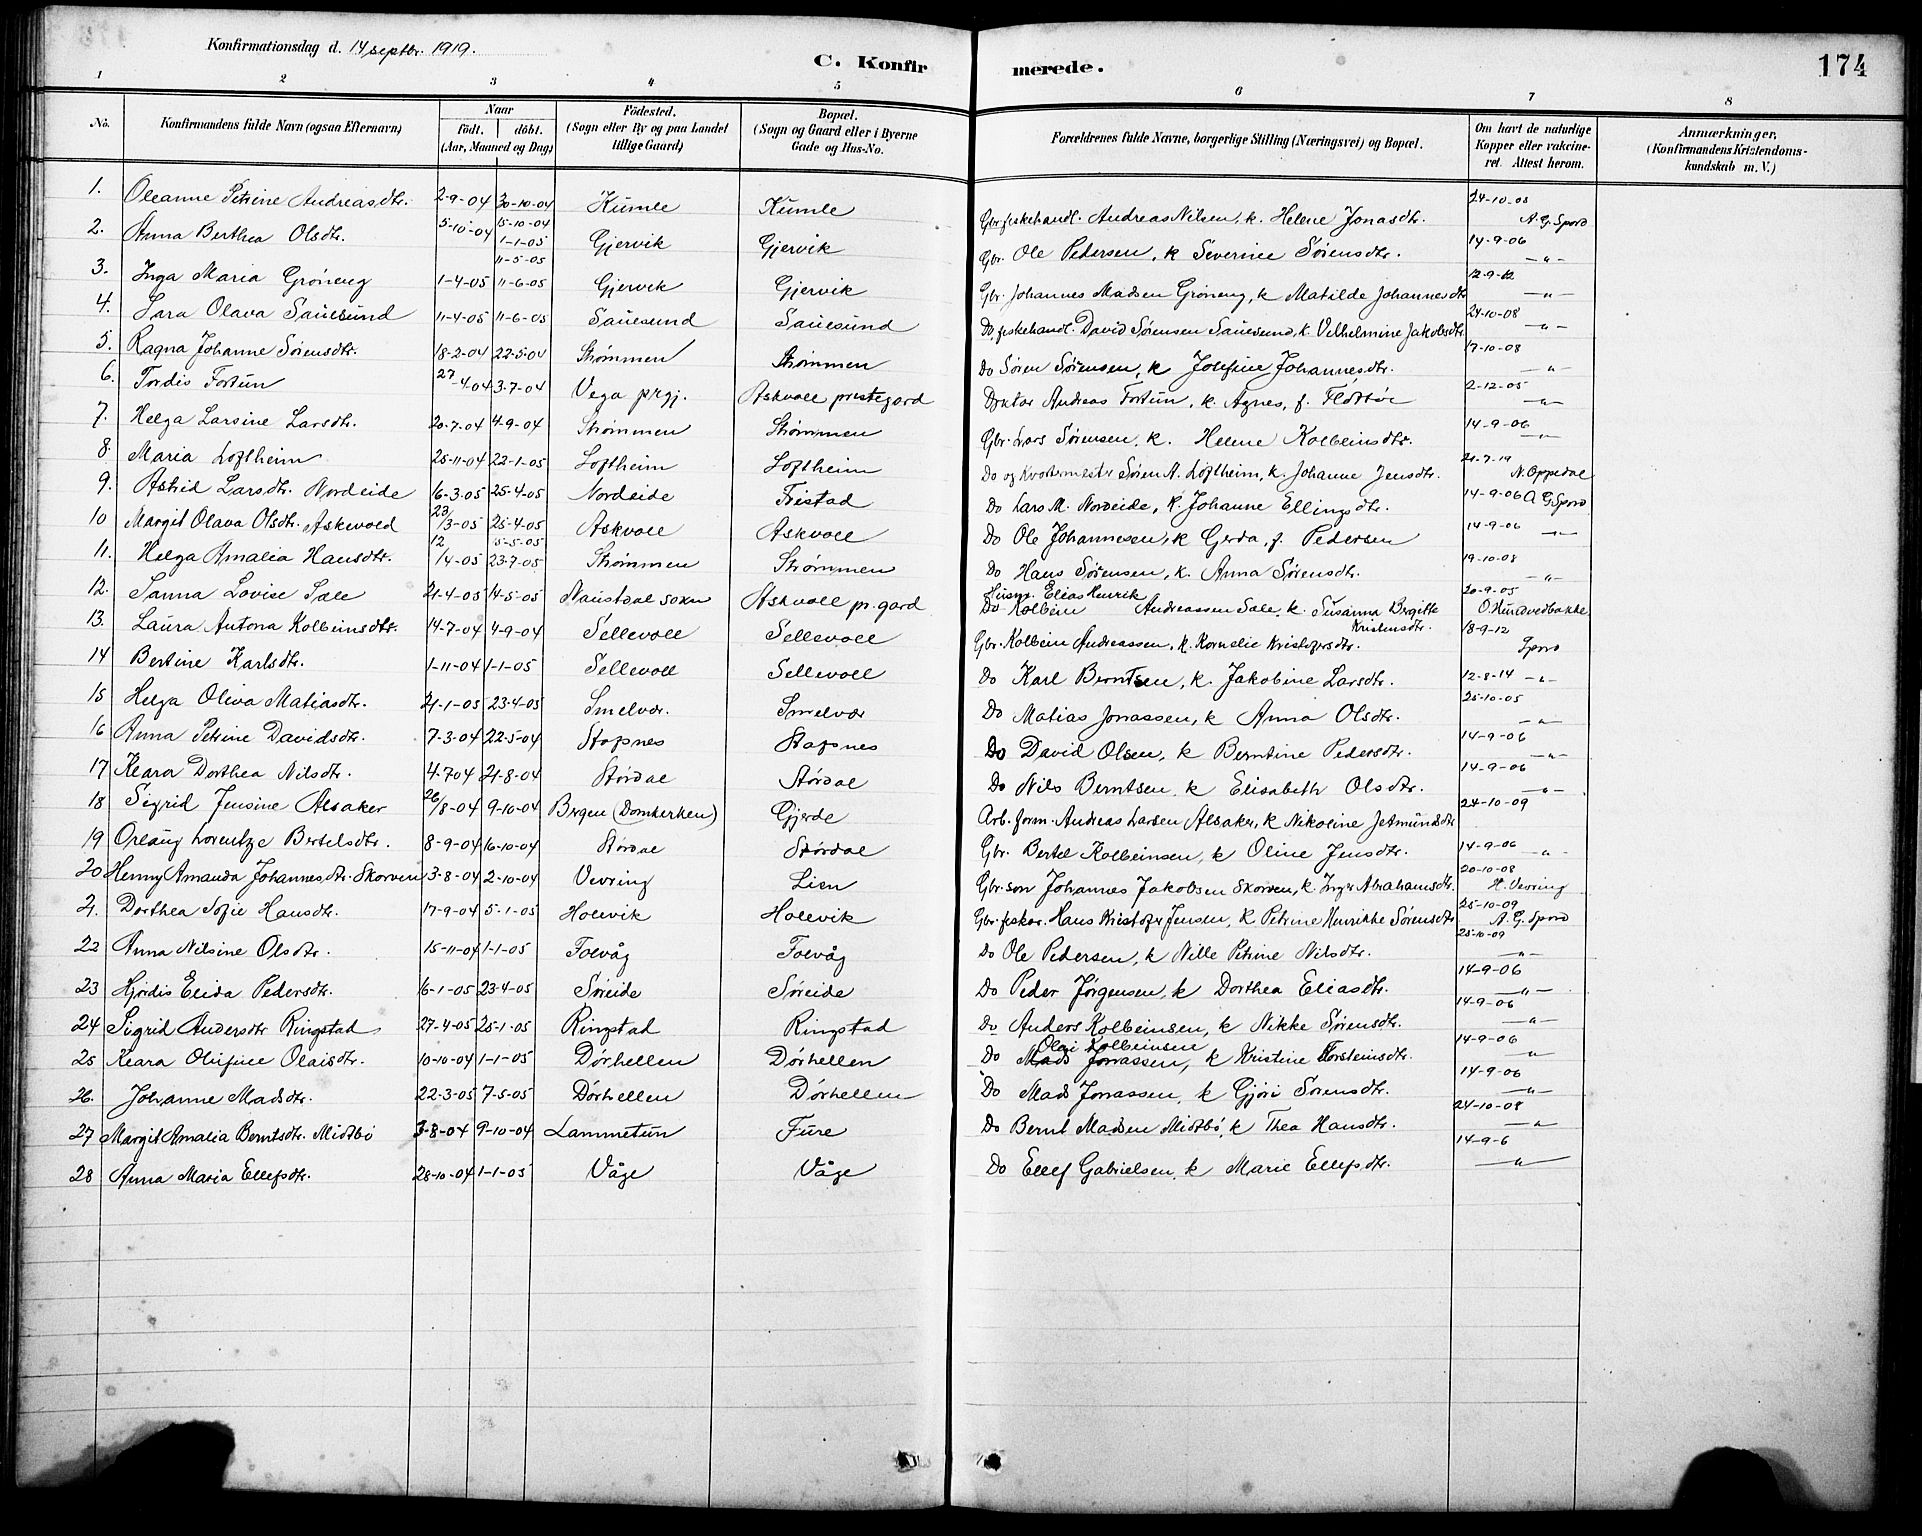 Konfirmationsdag d. 14 septbr. 1919.
C. Konfirmerede.
174
1 2 3 4 5 6 7 8
No. Konfirmandens fulde Navn (ogsaa Efternavn) Naar födt. döbt. (Aar, Maaned og Dag) Födested. (Sogn eller By og paa Landet tillige Gaard) Bopæl. (Sogn og Gaard eller i Byerne Gade og Hus-No. Forældrenes fulde Navne, borgerlige Stilling (Næringsvei) og Bopæl. Om havt de naturlige Kopper eller vakcineret. Attest herom. Anmærkninger, (Konfirmandens Kristendomskundskab m. V.)
1. Oleanne Petrine Andreasdtr. 2-9-04 30-10-04 Kumle Kumle Gbr. fiskehandl. Andreas Nilsen, k. Helene Jonasdtr. 24-10-08 A. G. Spord
2. Anna Berthea Olsdtr. 5-10-04 15-10-04 1-1-05 Gjervik Gjervik Gbr. Ole Pedersen, k Severine Sørensdtr. 14-9-06 —"—
3. Inga Maria Gröneng 1-4-05 11-5-05 11-6-05 Gjervik Gjervik Gbr. Johannes Madsen Gröneng, k Matilde Johannesdtr 12-9-12 —"—
4. Lara Olava Sauesund 11-4-05 11-6-05 Sauesund Sauesund Do, fiskehandl. David Sørensen Sauesund, k. Vilhelmine Jakobsdtr. 24-10-08 —"—
5. Ragna Johanne Sörensdtr. 18-2-04 22-5-04 Strömmen Strömmen Do Sören Sørensen, k Josefine Johannesdtr. 17-10-08 —"—
6. Tordis Fortun 27-4-04 3-7-04 Vega prgj. Askvoll prestegard Doktor Andreas Fortun, k. Agnes, f. 2-12-05 —"—
7. Helga Larsine Larsdtr. 20-7-04 4-9-04 Strömmen Strömmen Gbr. Lars Sørensen, k. Helene Kolbeinsdtr. 14-9-06 —"—
8. Maria Loftheim 25-11-04 22-1-05 Loftheim Loftheim Do og Kvartermester Søren A. Loftheim, k. Johanne Jensdtr. 21-7-19 N. Oppedal
9. Astrid Larsdtr. Nordeide 16-3-05 25-4-05 Nordeide Tristad Do Lars M. Nordeide, k. Johanne Ellingsdtr. 14-9-06 A. G. Spord
10 Margit Olava Olsdtr. Askevold 23/3-05 25-4-05 Askvoll Askvoll Do Ole Johannesen, k Gerda, f. Pedersen 14-9-06 —"—
11. Helga Amalia Hansdtr. 12/4-05 5-5-05 23-7-05 Strömmen Strömmen Do Hans Sørensen, k. Anna Sørensdtr. 19-10-08 —"—
12. Sanna Lovise Sale 21-4-05 14-5-05 Naustdal sokn Askvoll pr.gard Husm. Elias Henrik Andreassen Sale, k. Susanna Birgitte Kristensdtr. 20-9-05
13. Laura Antona Kolbeinsdtr. 14-7-04 4-9-04 Sellevoll Sellevoll Gbr. Kolbein Andreassen, k. Kornelie Kristofersdtr. 18-9-12 Spord
14 Bertine Karlsdtr. 1-11-04 1-1-05 Sellevoll Sellevoll Do Karl Berntsen, k. Jakobine Larsdtr. 12-8-14 —"—
15 Helga Oliva Matiasdtr. 21-1-05 23-4-05 Smelvær. Smelvær Do Matias Jonassen, k Anna Olsdtr. 25-10-05 —"—
16 Anna Petrine Davidsdtr. 7-3-04 22-5-04 Stapnes Stapnes Do David Olsen, k Berntine Pedersdtr. 14-9-06 —"—
17 Klara Dorthea Nilsdtr. 4-7-04 21-8-04 Stórdal Stórdal Do Nils Berntsen, k Elisabeth Olsdtr. 14-9-06 —"—
18 Sigrid Jensine Alsaker 26/8-04 9-10-04 Bergen (Domkirken) Gjerde Arb. form. Andreas Larsen Alsaker, k Nikoline Jetmundsdtr 24-10-09
19 Oslaug Lorentze Bertelsdtr. 8-9-04 16-10-04 Stórdal Stórdal Gbr. Bertel Kolbeinsen, k Oline Jensdtr. 14-9-06 —"—
20 Henny Amanda Johannesdtr. Skorven 3-8-04 2-10-04 Vevring Lien Gbr. son Johannes Jakobsen Skorven, k. Inger Abrahamsdtr. 20-10-08 H. Vevring
21. Dorthea Sofie Hansdtr. 17-9-04 5-1-05 Holevik Holevik Gbr. fisker. Hans Kristofer Jensen, k Petrine Henrikke Sörensdtr 25-10-09 A. G. Spord
22 Anna Nilsine Olsdtr. 15-11-04 1-1-05 Folvåg Folvåg Do Ole Pedersen, k Nille Petrine Nilsdtr. 25-10-09 —"—
23 Hjördis Elida Pedersdtr. 16-1-05 23-4-05 Söreide Söreide Do Peder Jørgensen, k Dorthea Eliasdtr. 14-9-06 —"—
24 Sigrid Andersdtr Ringstad 27-4-05 25-1-05 Ringstad Ringstad Do Anders Kolbeinsen, k Nikke Sørensdtr. 14-9-06 —"—
25 Klara Olufine Olaisdtr. 10-10-04 1-1-05 Dörhellen Dörhellen Do Olai Kolbeinsen Mads Jonassen, k Kristine Torsteinsdtr. 14-9-06 —"—
26. Johanne Madsdtr. 22-3-05 7-5-05 Dörhellen Dörhellen Do Mads Jonassen, k Gjöri Sörensdtr. 14-9-06 —"—
27 Margit Amalia Berntsdtr. Midtbö 3-8-04 9-10-04 Lammetun Fure Do Bernt Madsen Midtbö, k Thea Hansdtr. 24-10-08 —"—
28 Anna Maria Ellefsdtr. 28-10-04 1-1-05 Våge Våge Do Ellef Gabrielsen, k Marie Ellefsdtr. 14-9-6 —"—